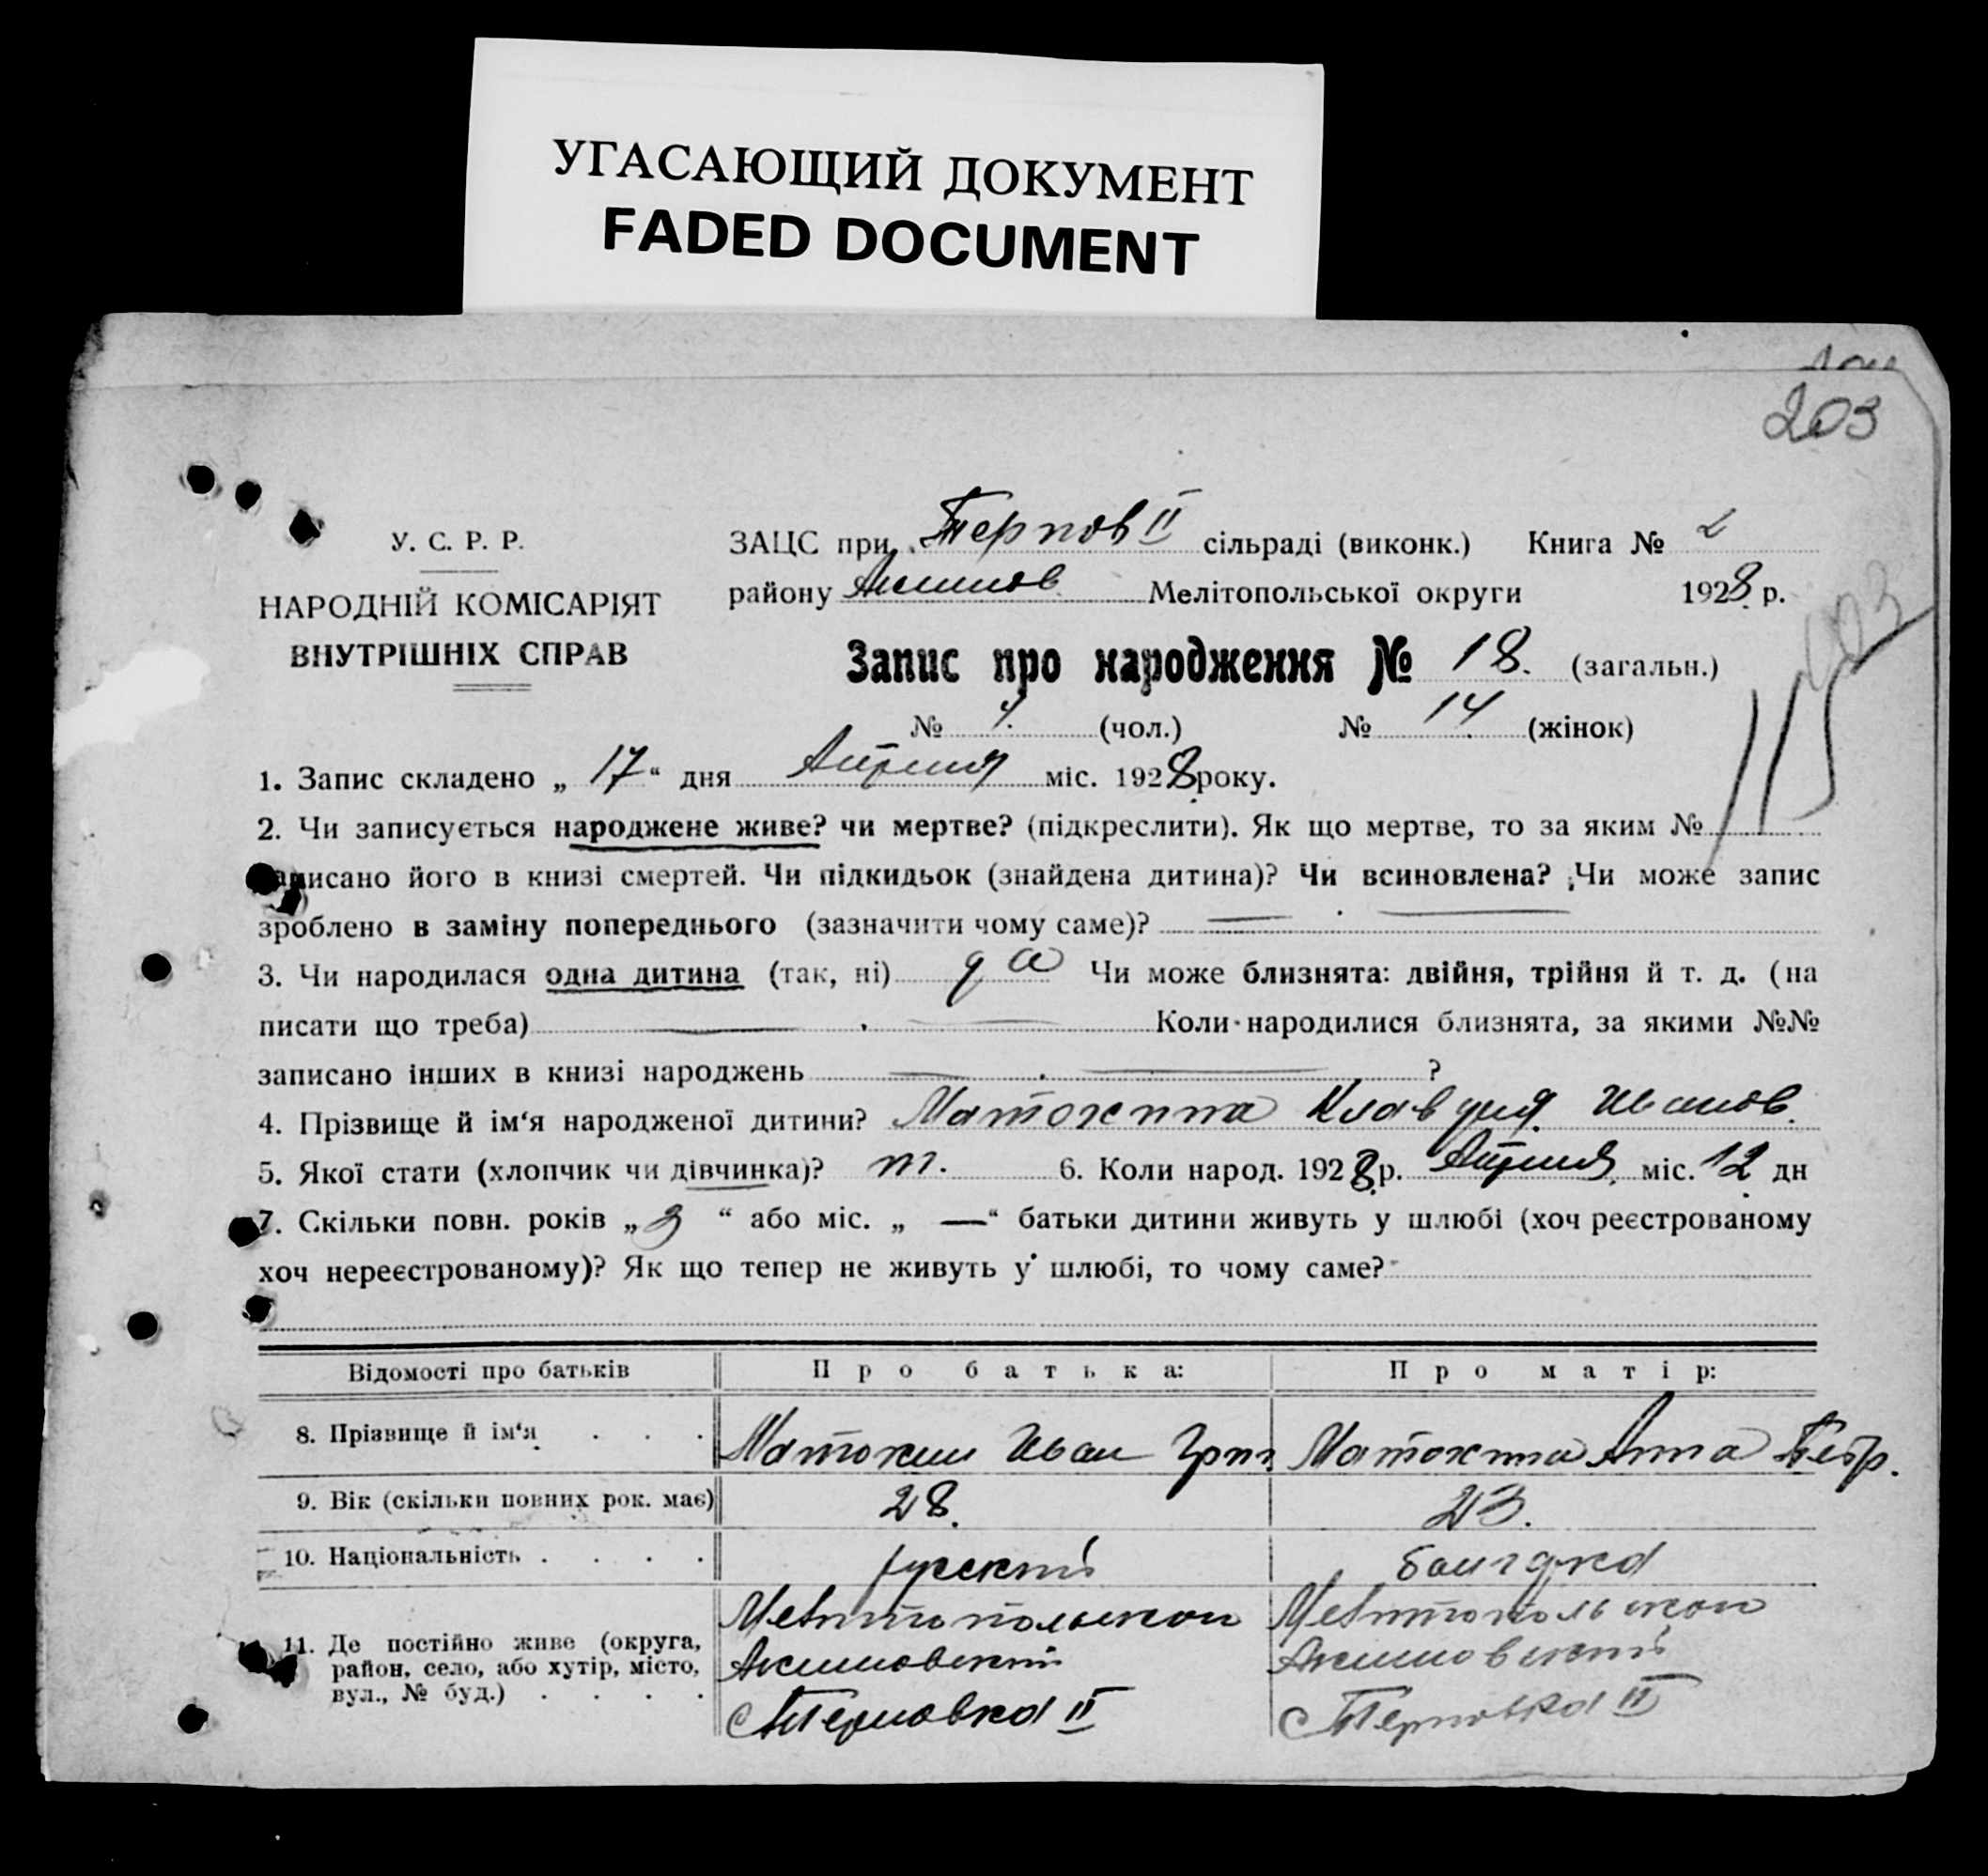 УГАСАЮЩИЙ ДОКУМЕНТ
FADED DOCUMENT
203
У. С. Р. Р.
НАРОДНІЙ КОМІСАРІЯТ
ВНУТРІШНІХ СПРАВ
ЗАЦС при Тернов II сільраді (виконк.) Книга № 2
району Акимов Мелітопольської округи 1928 р.
Запис про народження № 18. (загальн.)
№ 4. (чол.) № 14 (жінок)
115
1. Запис складено „17“ дня Апреля міс. 1928 року.
2. Чи записується народжене живе? чи мертве? (підкреслити). Як що мертве, то за яким №
записано його в книзі смертей. Чи підкидьок (знайдена дитина)? Чи всиновлена? Чи може запис
зроблено в заміну попереднього (зазначити чому саме)? —
3. Чи народилася одна дитина (так, ні) да Чи може близнята: двійня, трійня й т. д. (на
писати що треба) — Коли народилися близнята, за якими №№
записано інших в книзі народжень — ?
4. Прізвище й ім‘я народженої дитини? Матокина Клавдия Иванов.
5. Якої стати (хлопчик чи дівчинка)? 6. Коли народ. 1928 р. Апреля міс. 12 дн
7. Скільки повн. років „3“ або міс. „—“ батьки дитини живуть у шлюбі (хоч реєстрованому
хоч нереєстрованому)? Як що тепер не живуть у шлюбі, то чому саме?
Відомості про батьків Про батька: Про матір:
8. Прізвище й ім‘я . . . Матокин Иван Григ Матокина Анна Петр.
9. Вік (скільки повних рок. має) 28. 23.
10. Національність . . . . русский болгарка
11. Де постійно живе (округа, район, село, або хутір, місто, вул., № буд.) . . . .
Мелитопольской Мелитопольской
Акимовский Акимовский
с Терновка II с Терновка II